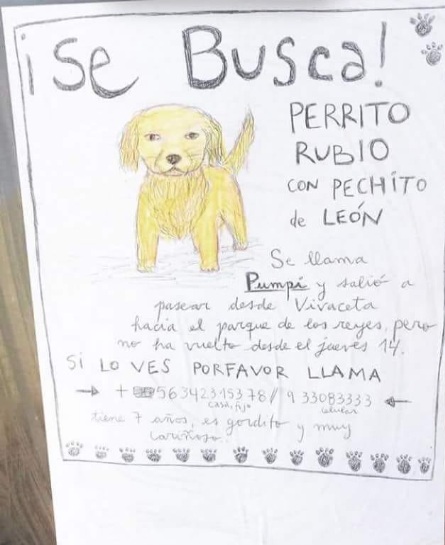 ¡Se Busca!
PERRITO
RUBIO
CON PECHITO
de LEÓN
Se llama
Pumpi y salió a
pasear desde Vivaceta
hacia el parque de los reyes, pero
no ha vuelto desde el jueves 14.
SI LO VES PORFAVOR LLAMA
→ + 56342315378 // 9 33083333 ←
casa, fijo celular
tiene 7 años, es gordito y muy
cariñoso.